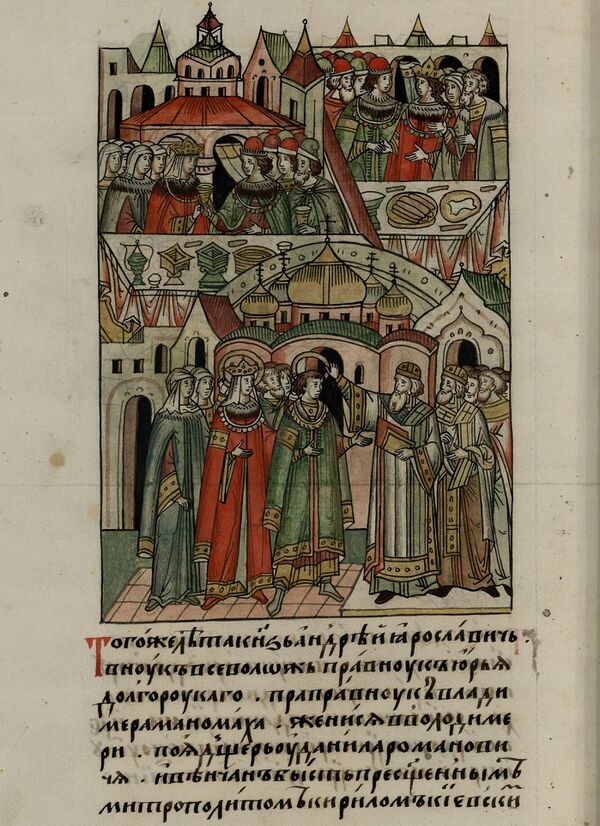 Тогожелѣтакн҃ѕьандрѣйꙗрославичь.
вноукъвсеволожь праⷡ҇ноукъюрьꙗ
долгороукаго. прапраⷡ҇ноукⸯвлади
мераманомаха. женисѧвволодиме
ри. поꙗдщерьоуданилароманови
чѧ. ивѣнчанъбыстьпресщ҃еннымъ
митрополитомъкириломъкїевскиⷨ